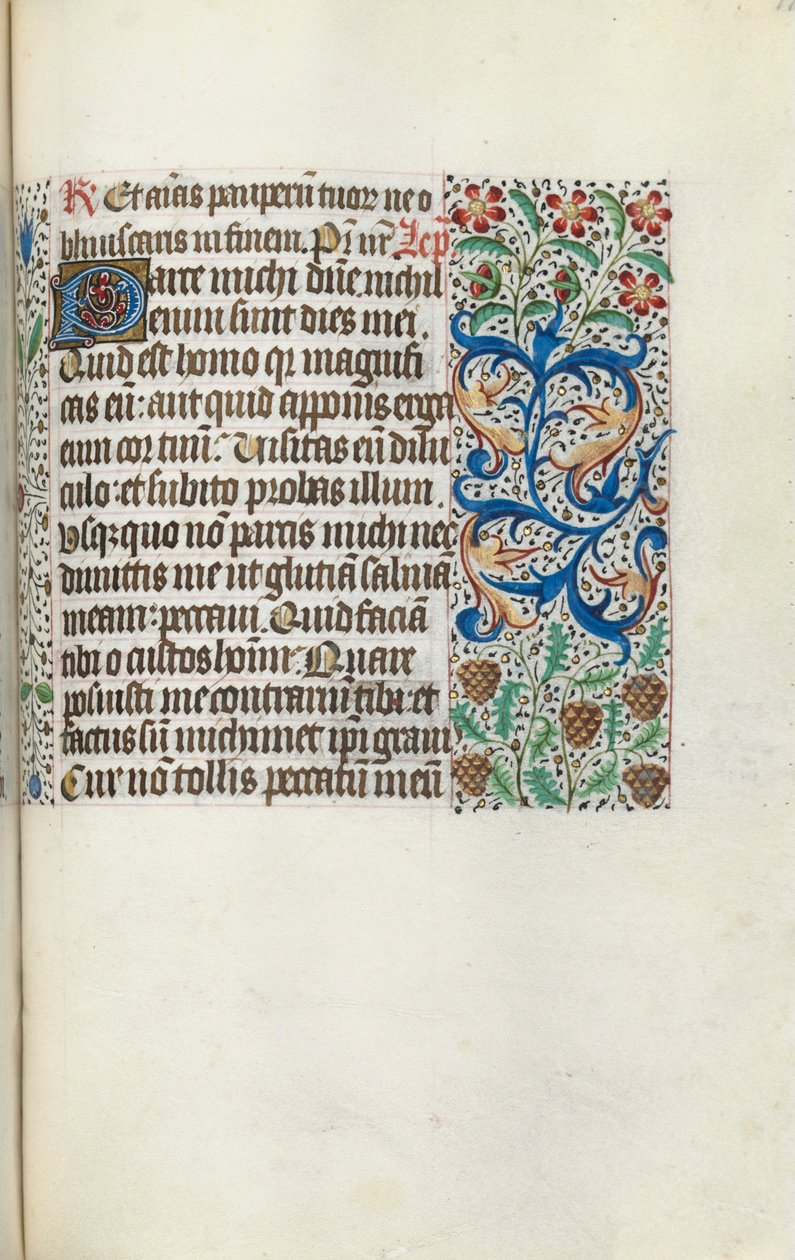 R Et aīas pauperū tuoꝝ ne o
bliuiscaris in finem. Pr̄ nr̄ Lcp̄.
Parce michi dūe. nichil
enim sunt dies mei.
Quid est homo qꝛ magnifi
cas eū: aut quid apponis erga
eum cor tuū: Uisitas eū dilu
culo: et subito probas illum.
Vsqꝫ quo nō parcis michi nec
dimittis me ut glutiā saliuā
meam: peccaui. Quid faciā
tibi o custos hoīm: Quare
posuisti me contrariū tibi: et
factus sū michimet ipi grauis
Cur nō tollis peccatū meū